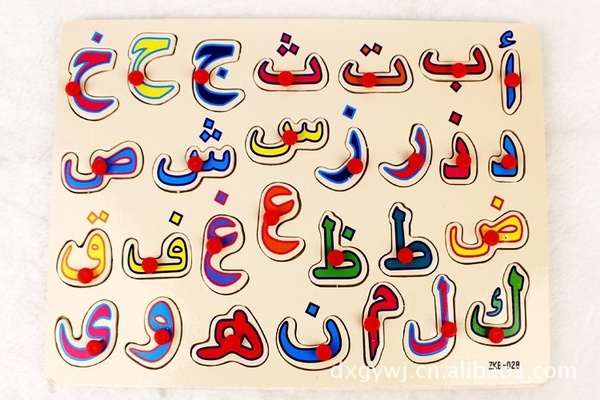 أ ب ت ث ج ح خ
د ذ ر ز س ش ص
ض ط ظ ع غ ف ق
ك ل م ن ه و ى
ZKB-02B
dxgywj.cn.alibaba.com